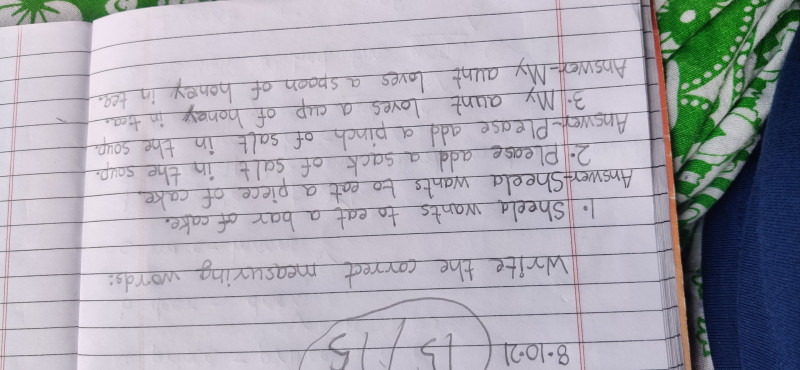 8.10.21
15/15
Write the correct measuring words:
1. Sheela wants to eat a bar of cake.
Answer-Sheela wants to eat a piece of cake.
2. Please add a sack of salt in the soup.
Answer-Please add a pinch of salt in the soup.
3. My aunt loves a cup of honey in tea.
Answer-My aunt loves a spoon of honey in tea.